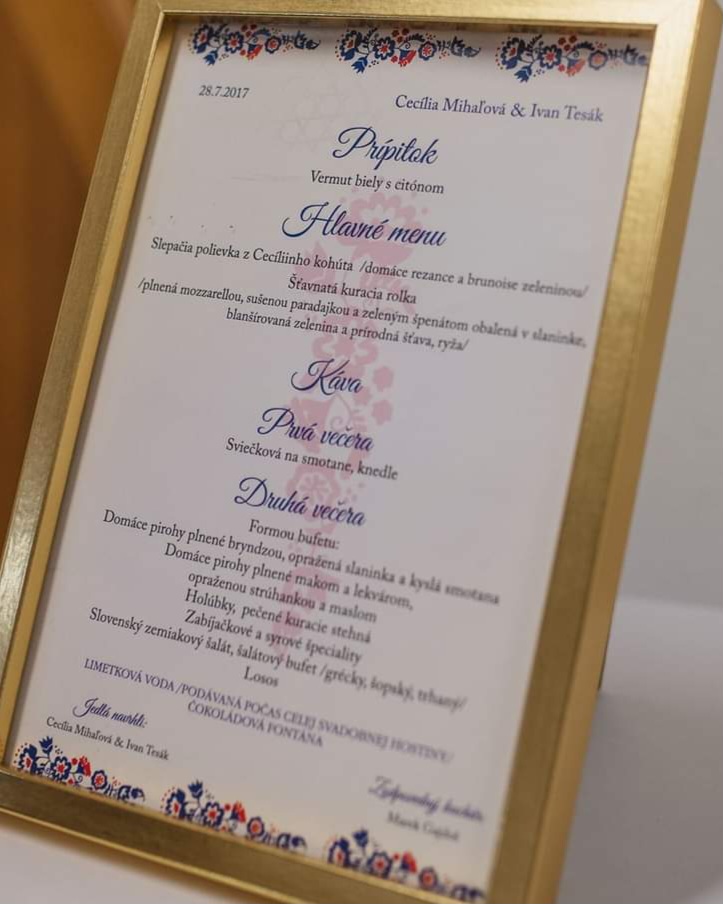 28.7.2017
Cecília Mihaľová & Ivan Tesák
Prípitok
Vermut biely s citónom
Hlavné menu
Slepačia polievka z Cecíliinho kohúta /domáce rezance a brunoise zeleninou/
Šťavnatá kuracia rolka
/plnená mozzarellou, sušenou paradajkou a zeleným špenátom obalená v slaninke,
blanšírovaná zelenina a prírodná šťava, ryža/
Káva
Prvá večera
Sviečková na smotane, knedle
Druhá večera
Formou bufetu:
Domáce pirohy plnené bryndzou, opražená slaninka a kyslá smotana
Domáce pirohy plnené makom a lekvárom,
opraženou strúhankou a maslom
Holúbky, pečené kuracie stehná
Zabíjačkové a syrové špeciality
Slovenský zemiakový šalát, šalátový bufet /grécky, šopský, trhaný/
Losos
LIMETKOVÁ VODA /PODÁVANÁ POČAS CELEJ SVADOBNEJ HOSTINY/
ČOKOLÁDOVÁ FONTÁNA
Jedlá navrhli:
Cecília Mihaľová & Ivan Tesák
Zodpovedný kuchár:
Marek